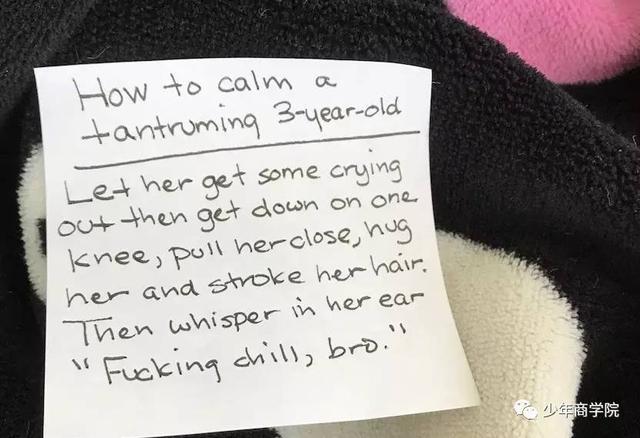 How to calm a
tantruming 3-year-old
Let her get some crying
out then get down on one
knee, pull her close, hug
her and stroke her hair.
Then whisper in her ear
"Fucking chill, bro."
少年商学院